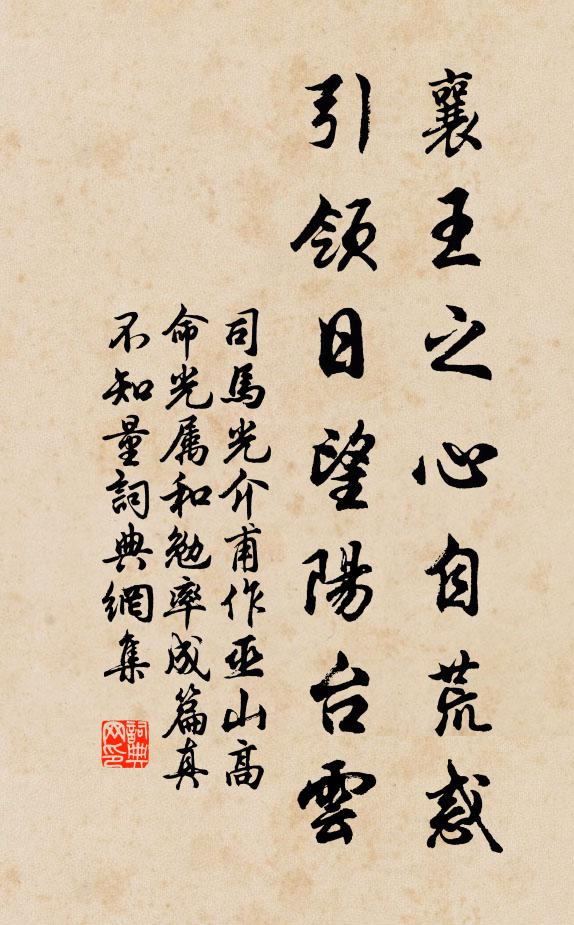 襄王之心自荒惑
引領日望陽台雲
司馬光介甫作巫山高
命光属和勉率成篇真
不知量詞典網集
詞典网印